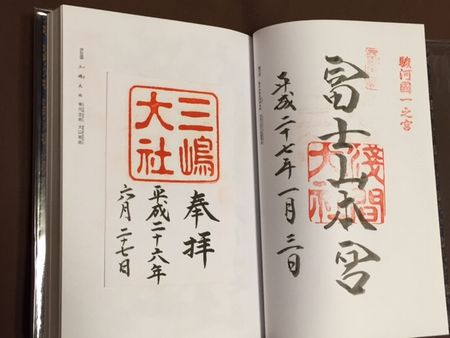 駿河國一之宮
冨士山本宮
淺間
大社
平成二十七年一月三日
三嶋
大社
奉拝
平成二十六年
六月二十七日